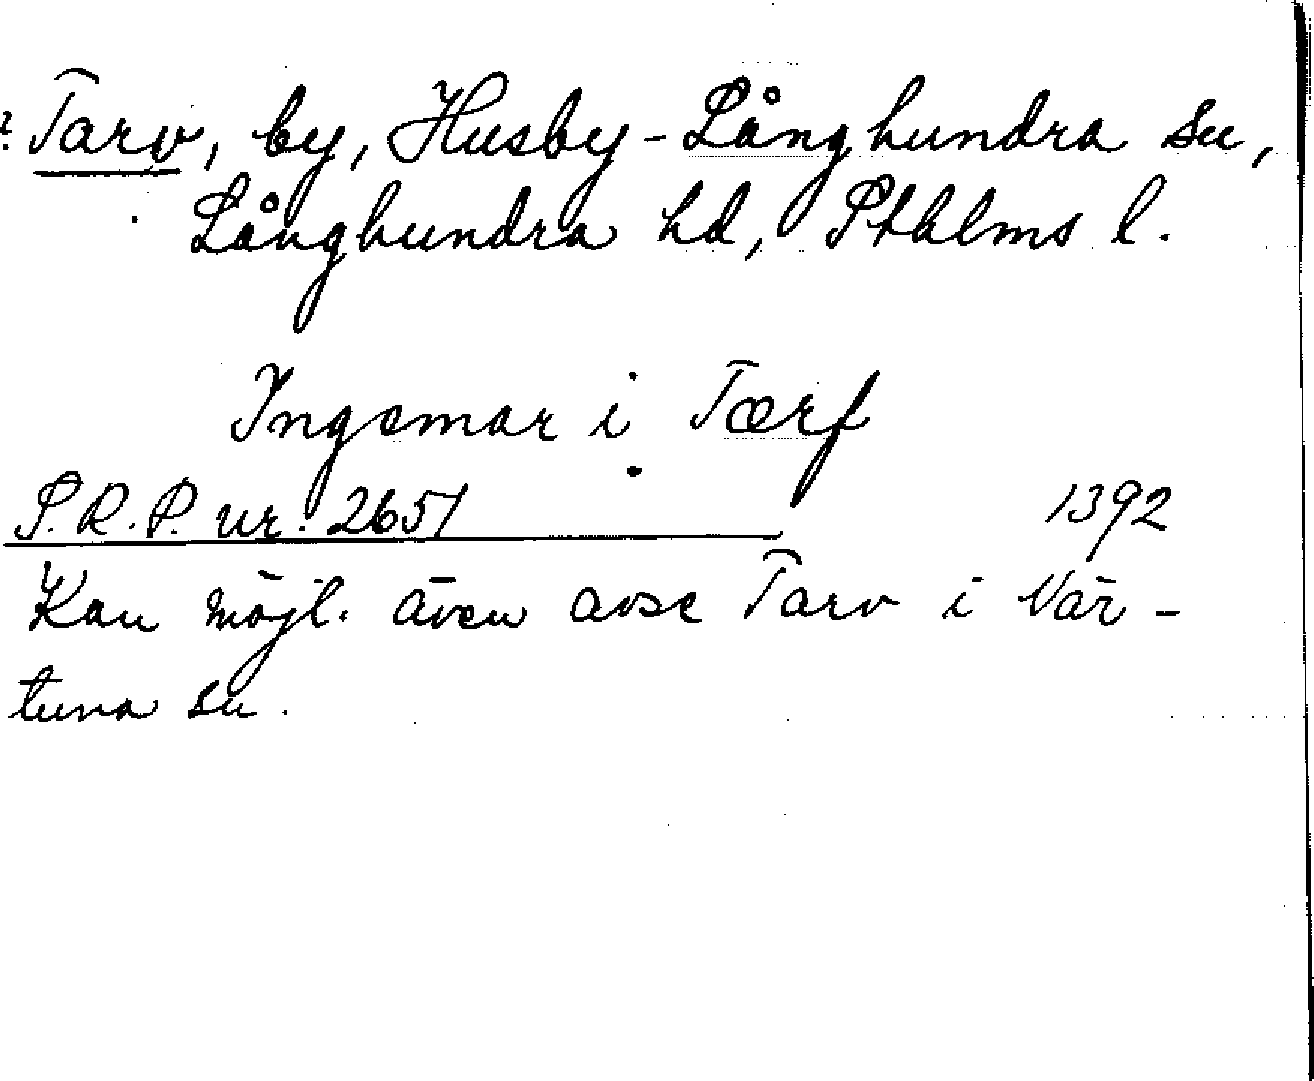 ? Tarv, by, Husby-Långhundra sn,
Långhundra hd, Sthlms l.
Ingemar i Tærf
S.R.P. nr. 2651 1392
Kan möjl. även avse Tarv i Vär-
tuna sn.